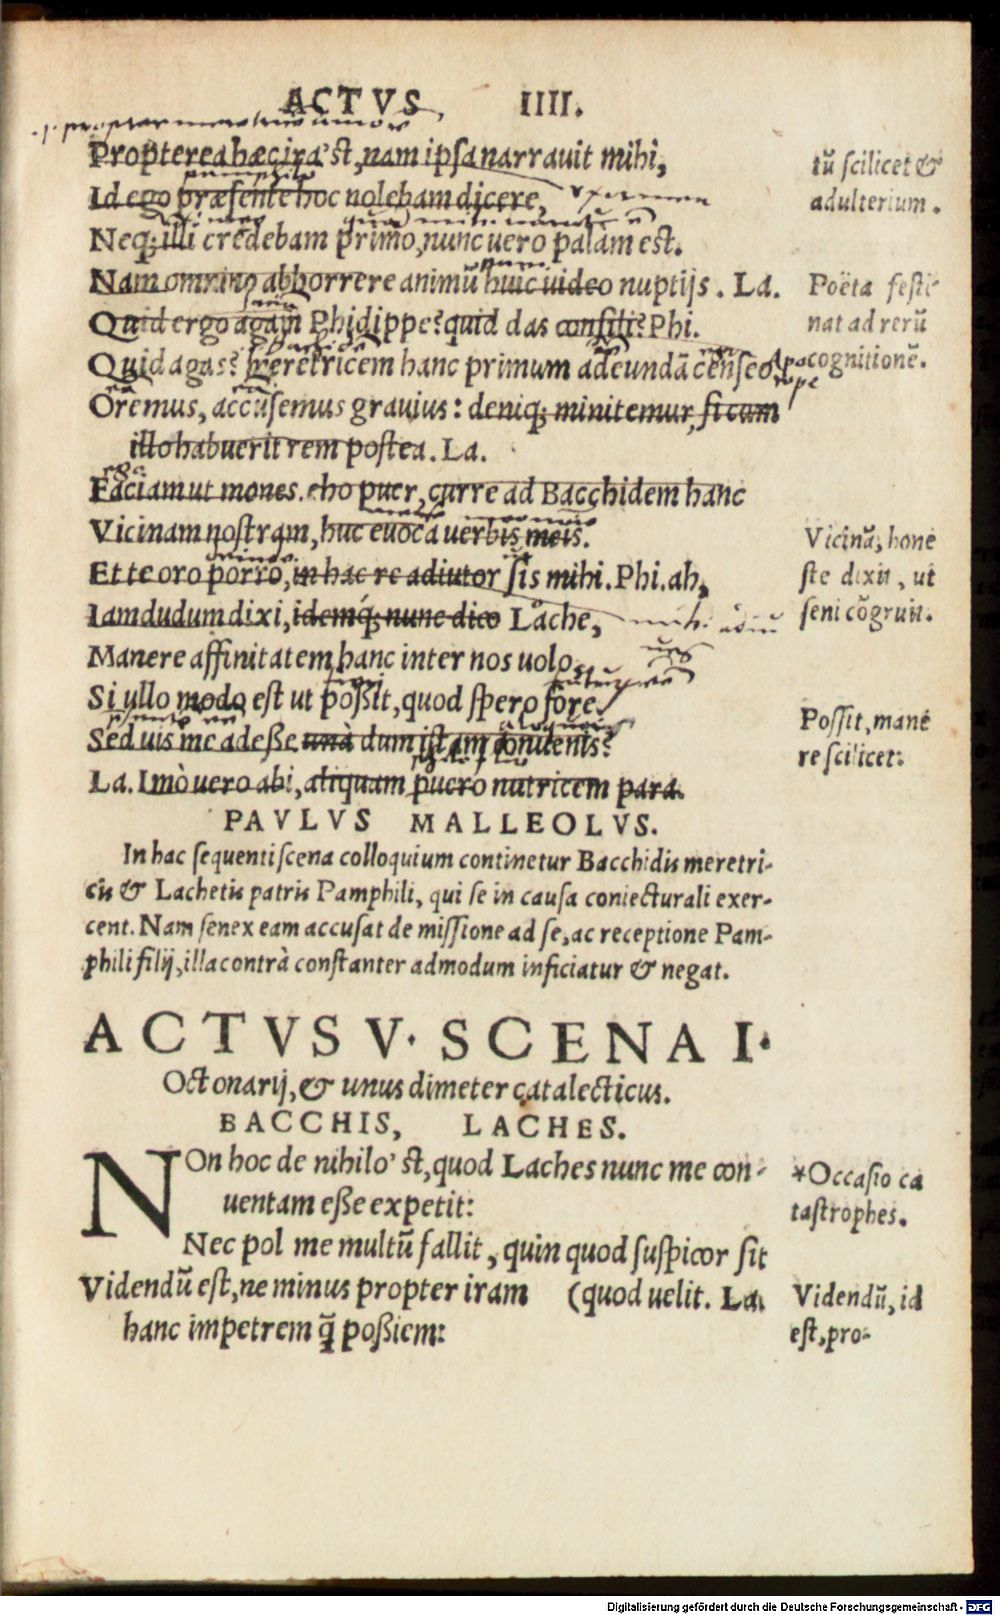 ACTVS IIII.
Propterea hæc ira'st, nam ipsa narrauit mihi,
Id ego præsente hoc nolebam dicere,
Neq; illi credebam primo, nunc uero palam est.
Nam omnino abhorrere animũ huic uideo nuptijs. La.
Quid ergo agam Phidippe? quid das consilij? Phi.
Quid agas? meretricem hanc primum adeundã censeo.
Oremus, accusemus grauius: deniq; minitemur, si cum
illo habuerit rem postea. La.
Faciam ut mones. eho puer, curre ad Bacchidem hanc
Vicinam nostram, huc euoca uerbis meis.
Et te oro porro, in hac re adiutor sis mihi. Phi. ah,
Iamdudum dixi, idemq́; nunc dico Lache,
Manere affinitatem hanc inter nos uolo.
Si ullo modo est ut poßit, quod spero fore.
Sed uis me adeße unà dum istam conuenis?
La. Imò uero abi, aliquam puero nutricem para.
tũ scilicet &
adulterium.
Poëta festi-
nat ad rerũ
cognitionẽ.
Vicinã, hone
ste dixit, ut
seni cõgruit.
Possit, mane
re scilicet.
PAVLVS MALLEOLVS.
In hac sequenti scena colloquium continetur Bacchidis meretri-
cis & Lachetis patris Pamphili, qui se in causa coniecturali exer-
cent. Nam senex eam accusat de missione ad se, ac receptione Pam-
phili filij, illa contrà constanter admodum inficiatur & negat.
ACTVS V. SCENA I.
Octonarij, & unus dimeter catalecticus.
BACCHIS, LACHES.
NOn hoc de nihilo'st, quod Laches nunc me con-
uentam eße expetit:
Nec pol me multũ fallit, quin quod suspicor sit
Videndũ est, ne minus propter iram (quod uelit. La.
hanc impetrem q̃ poßiem:
*Occasio ca
tastrophes.
Videndũ, id
est, pro-
Digitalisierung gefördert durch die Deutsche Forschungsgemeinschaft - DFG